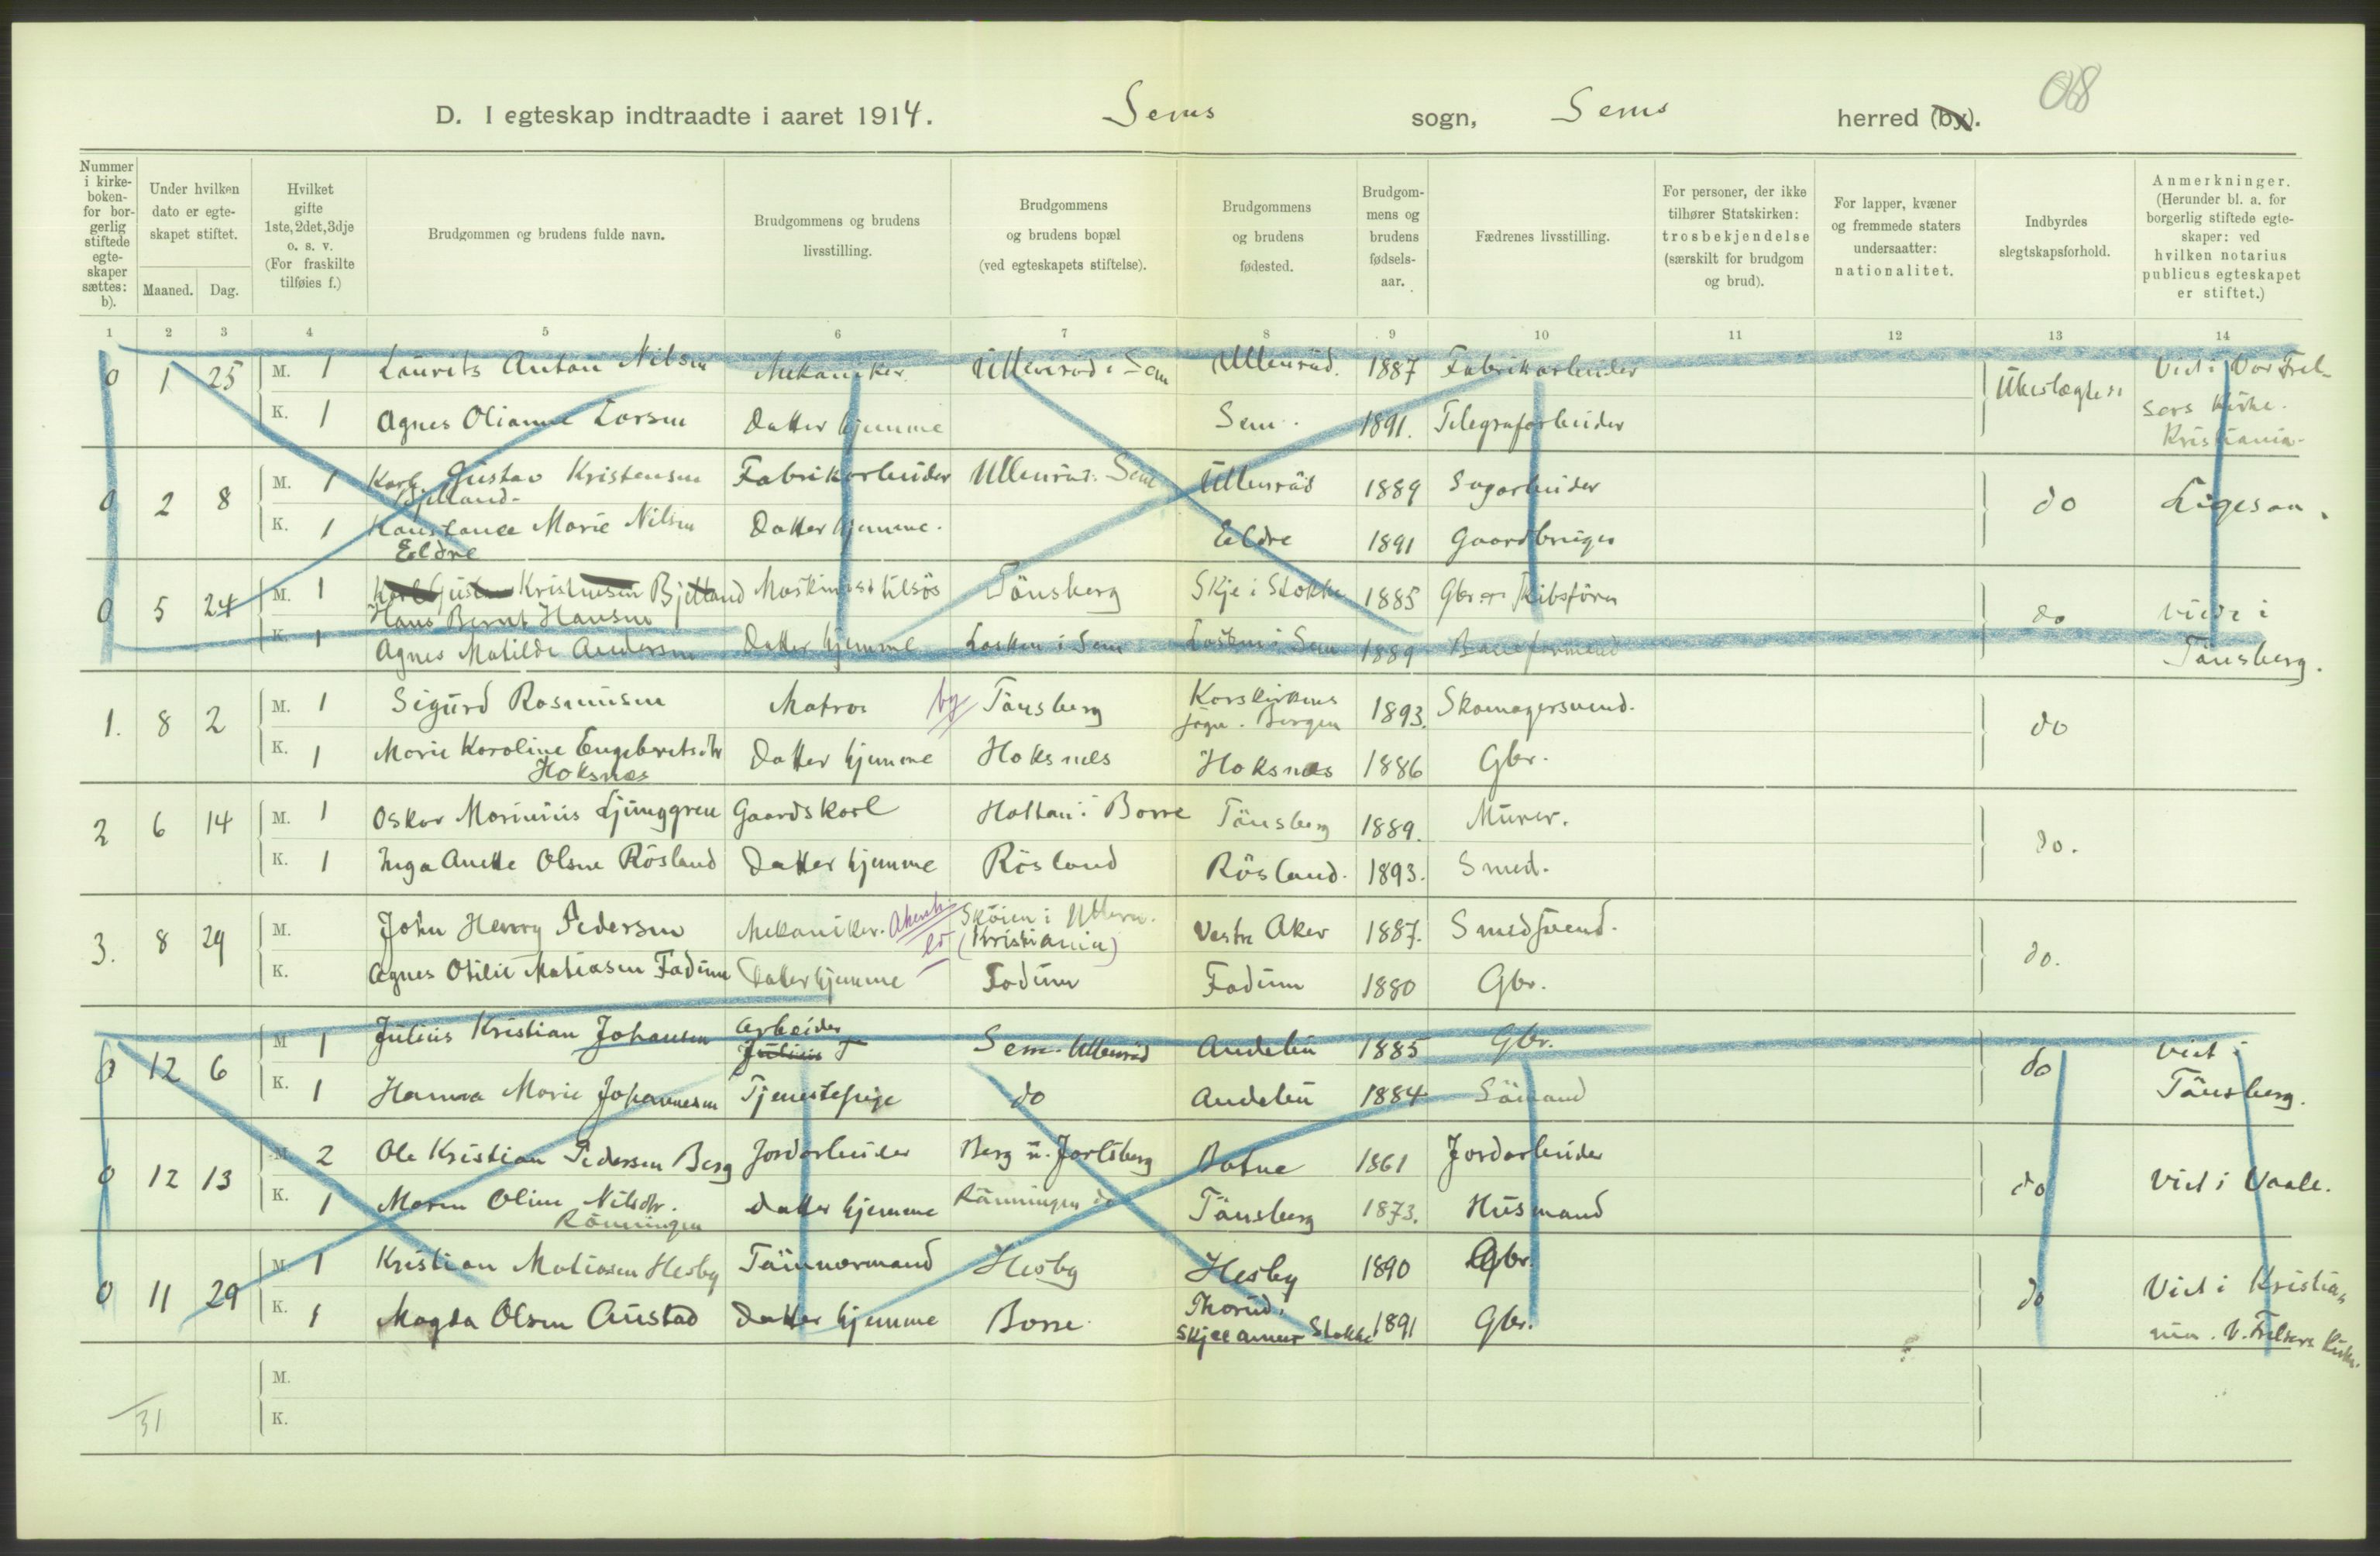 D. I egteskap indtraadte i aaret 1914. Sems sogn, Sems herred (by).
Nummer i kirkeboken- for borgerlig stiftede egteskaper sættes: b).
Under hvilken dato er egteskapet stiftet.
Maaned. Dag.
Hvilket gifte 1ste, 2det, 3dje o. s. v. (For fraskilte tilføies f.)
Brudgommen og brudens fulde navn.
Brudgommens og brudens livsstilling.
Brudgommens og brudens bopæl (ved egteskapets stiftelse).
Brudgommens og brudens fødested.
Brudgommens og brudens fødselsaar.
Fædrenes livsstilling.
For personer, der ikke tilhører Statskirken: trosbekjendelse (særskilt for brudgom og brud).
For lapper, kvæner og fremmede staters undersaatter: nationalitet.
Indbyrdes slegtskapsforhold.
Anmerkninger. (Herunder bl. a. for borgerlig stiftede egteskaper: ved hvilken notarius publicus egteskapet er stiftet.)
1 2 3 4 5 6 7 8 9 10 11 12 13 14
0 1 25 M. 1 Laurits Anton Nilsen Mekaniker Ullenrød i Sem Ullenrød. 1887 Fabrikarbeider Viet i Vor Frelsers Kirke. Kristiania.
K. 1 Agnes Olianne Larsen Datter hjemme Sem. 1891. Telegrafarbeider
0 2 8 M. 1 Karl Gustav Kristensen Bjelland Fabrikarbeider Ullenrød i Sem Ullenrød 1889 Sagarbeider do Ligesaa.
K. 1 Konstance Marie Nilsen Eldre Datter hjemme. Eldre 1891 Gaardbruger
0 5 24 M. 1 Karl Gustav Kristensen Bjelland Hans Bernt Hansen Maskinist tilsøs Tønsberg Skje i Stokke 1885 Gbr. og Skibsfører do viede i Tønsberg.
K. 1 Agnes Matilde Andersen Datter hjemme i Sem i Sem 1889 Baneformand
1. 8 2 M. 1 Sigurd Rasmussen Matros by Tønsberg Korskirkens sogn. Bergen 1893. Skomagersvend. do
K. 1 Marie Karoline Engebretsdtr Hoksnæs Datter hjemme Hoksnes Hoksnæs 1886 Gbr.
2 6 14 M. 1 Oskar Marinius Ljunggren Gaardskarl Holtan i Borre Tønsberg 1889. Murer. do.
K. 1 Inga Anette Olsen Røsland Datter hjemme Røsland Røsland. 1893. Smed.
3. 8 29 M. John Henry Pedersen Mekaniker. Skøien i Ullern. (Kristiania) Vestre Aker 1887. Smedsvend. do.
K. Agnes Otilie Matiasen Fadum Datter hjemme Fadum Fadum 1880 Gbr.
0 12 6 M 1 Julius Kristian Johansen Arbeider Sem. Ullenrød Andebu 1885 Gbr. do viet i Tønsberg.
K. 1 Hanna Marie Johannesen Tjenestepige do Andebu 1884 Sømand
0 12 13 M. 2 Ole Kristian Pedersen Berg Jordarbeider Berg u. Jarlsberg Botne 1861 Jordarbeider do Viet i Vaale.
K. 1 Maren Oline Nilsdtr. Rønningen datter hjemme Rønningen do Tønsberg 1873. Husmand
0 11 29 M. 1 Kristian Matiasen Hesby Tømmermand Hesby Hesby 1890 Gbr. do Viet i Kristiania. V. Frelsers Kirke.
K. 1 Magda Olsen Austad Datter hjemme Borre Thorud, Stokke 1891 Gbr.
31 M.
K.